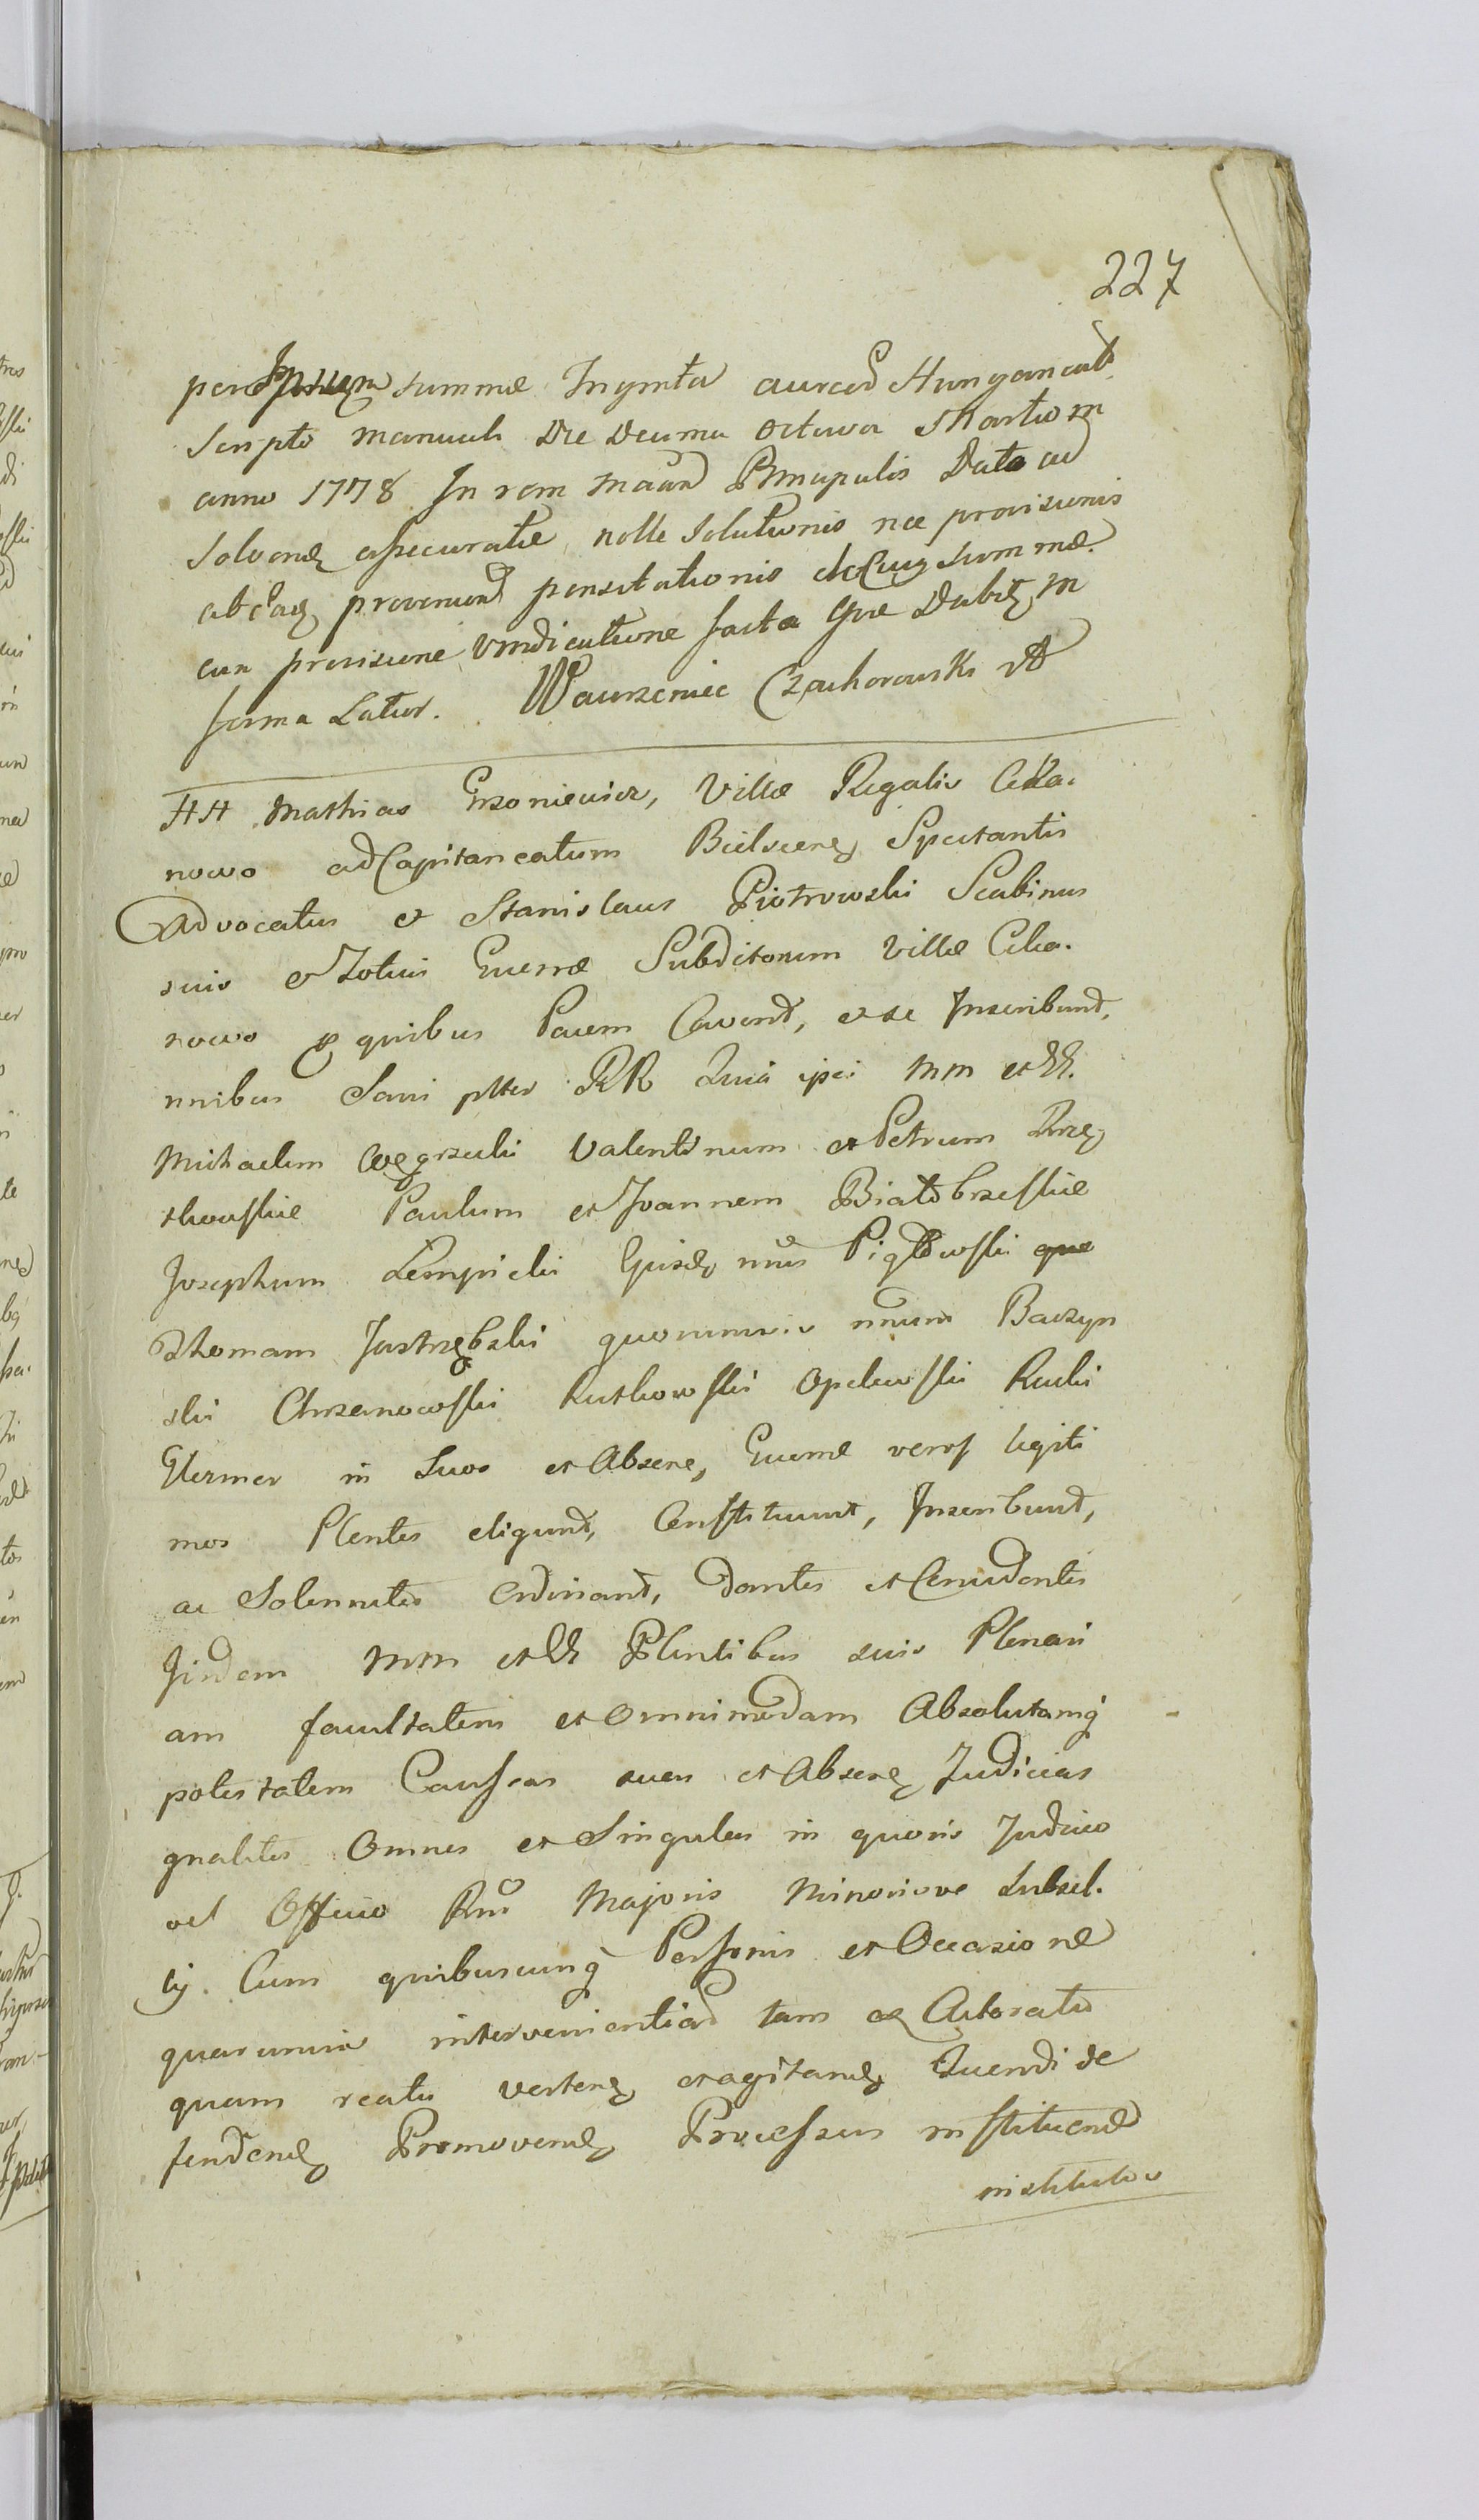 227
per Ipsum summæ Triginta aureor Hungarical
Scripto manuali Die Decima Octava Martio m
anno 1778 In rem Principalis Dato ad
Solvend assecuratæ nolle Solutionis nec provisionis
ab ead provenien pensitationis de Cuius summæ
cum provisione vindicatione facta Qvæ Dabit m
forma Latior. Wawrzeniec Czachorowski
HH Mathias Villæ Regalis Ceka
nowo ad Capitaneatum Bielscens Spectantis
Advocatus et Stanislaus Piotrowski Scabinus
suis et Totius Subditorum Villæ Ceka.
nowo quibus Pacem Cavent, et se Inscribunt,
nnibus Sani RR Quia ipsi MM et
Michaelem Węgrzecki Valentinum et Petrum
Paulum et Joannem Białobrzeskie
Josephum Lempicki Piglowski
Thomam Jastrzębski quorumvis Baczyn
ski Chrzanowski Rutkowski Opelewski Rucki
Glezmer in Suos et Absen, veros legiti
mos Plentes eligunt, Constituunt, Inscribunt,
ac Solenniter Ordinant, dantes et Concedentes
Jisdem MM et Plentibus suis Plenari
am facultatem et Omnimodam Absolutamq
potestatem Causas suas et Absen Judicias
gnaliter Omnes et Singulas in quovis Judicio
vel Officio Rni Majoris Minorisve Subsel.
ij. Cum quibuscunq Personis et Occasione
quarumvis intervenientiar tam ex Actoratu
quam reatu verten et agitand Tuendi de
fendend Promovend Processus instituend
institutos